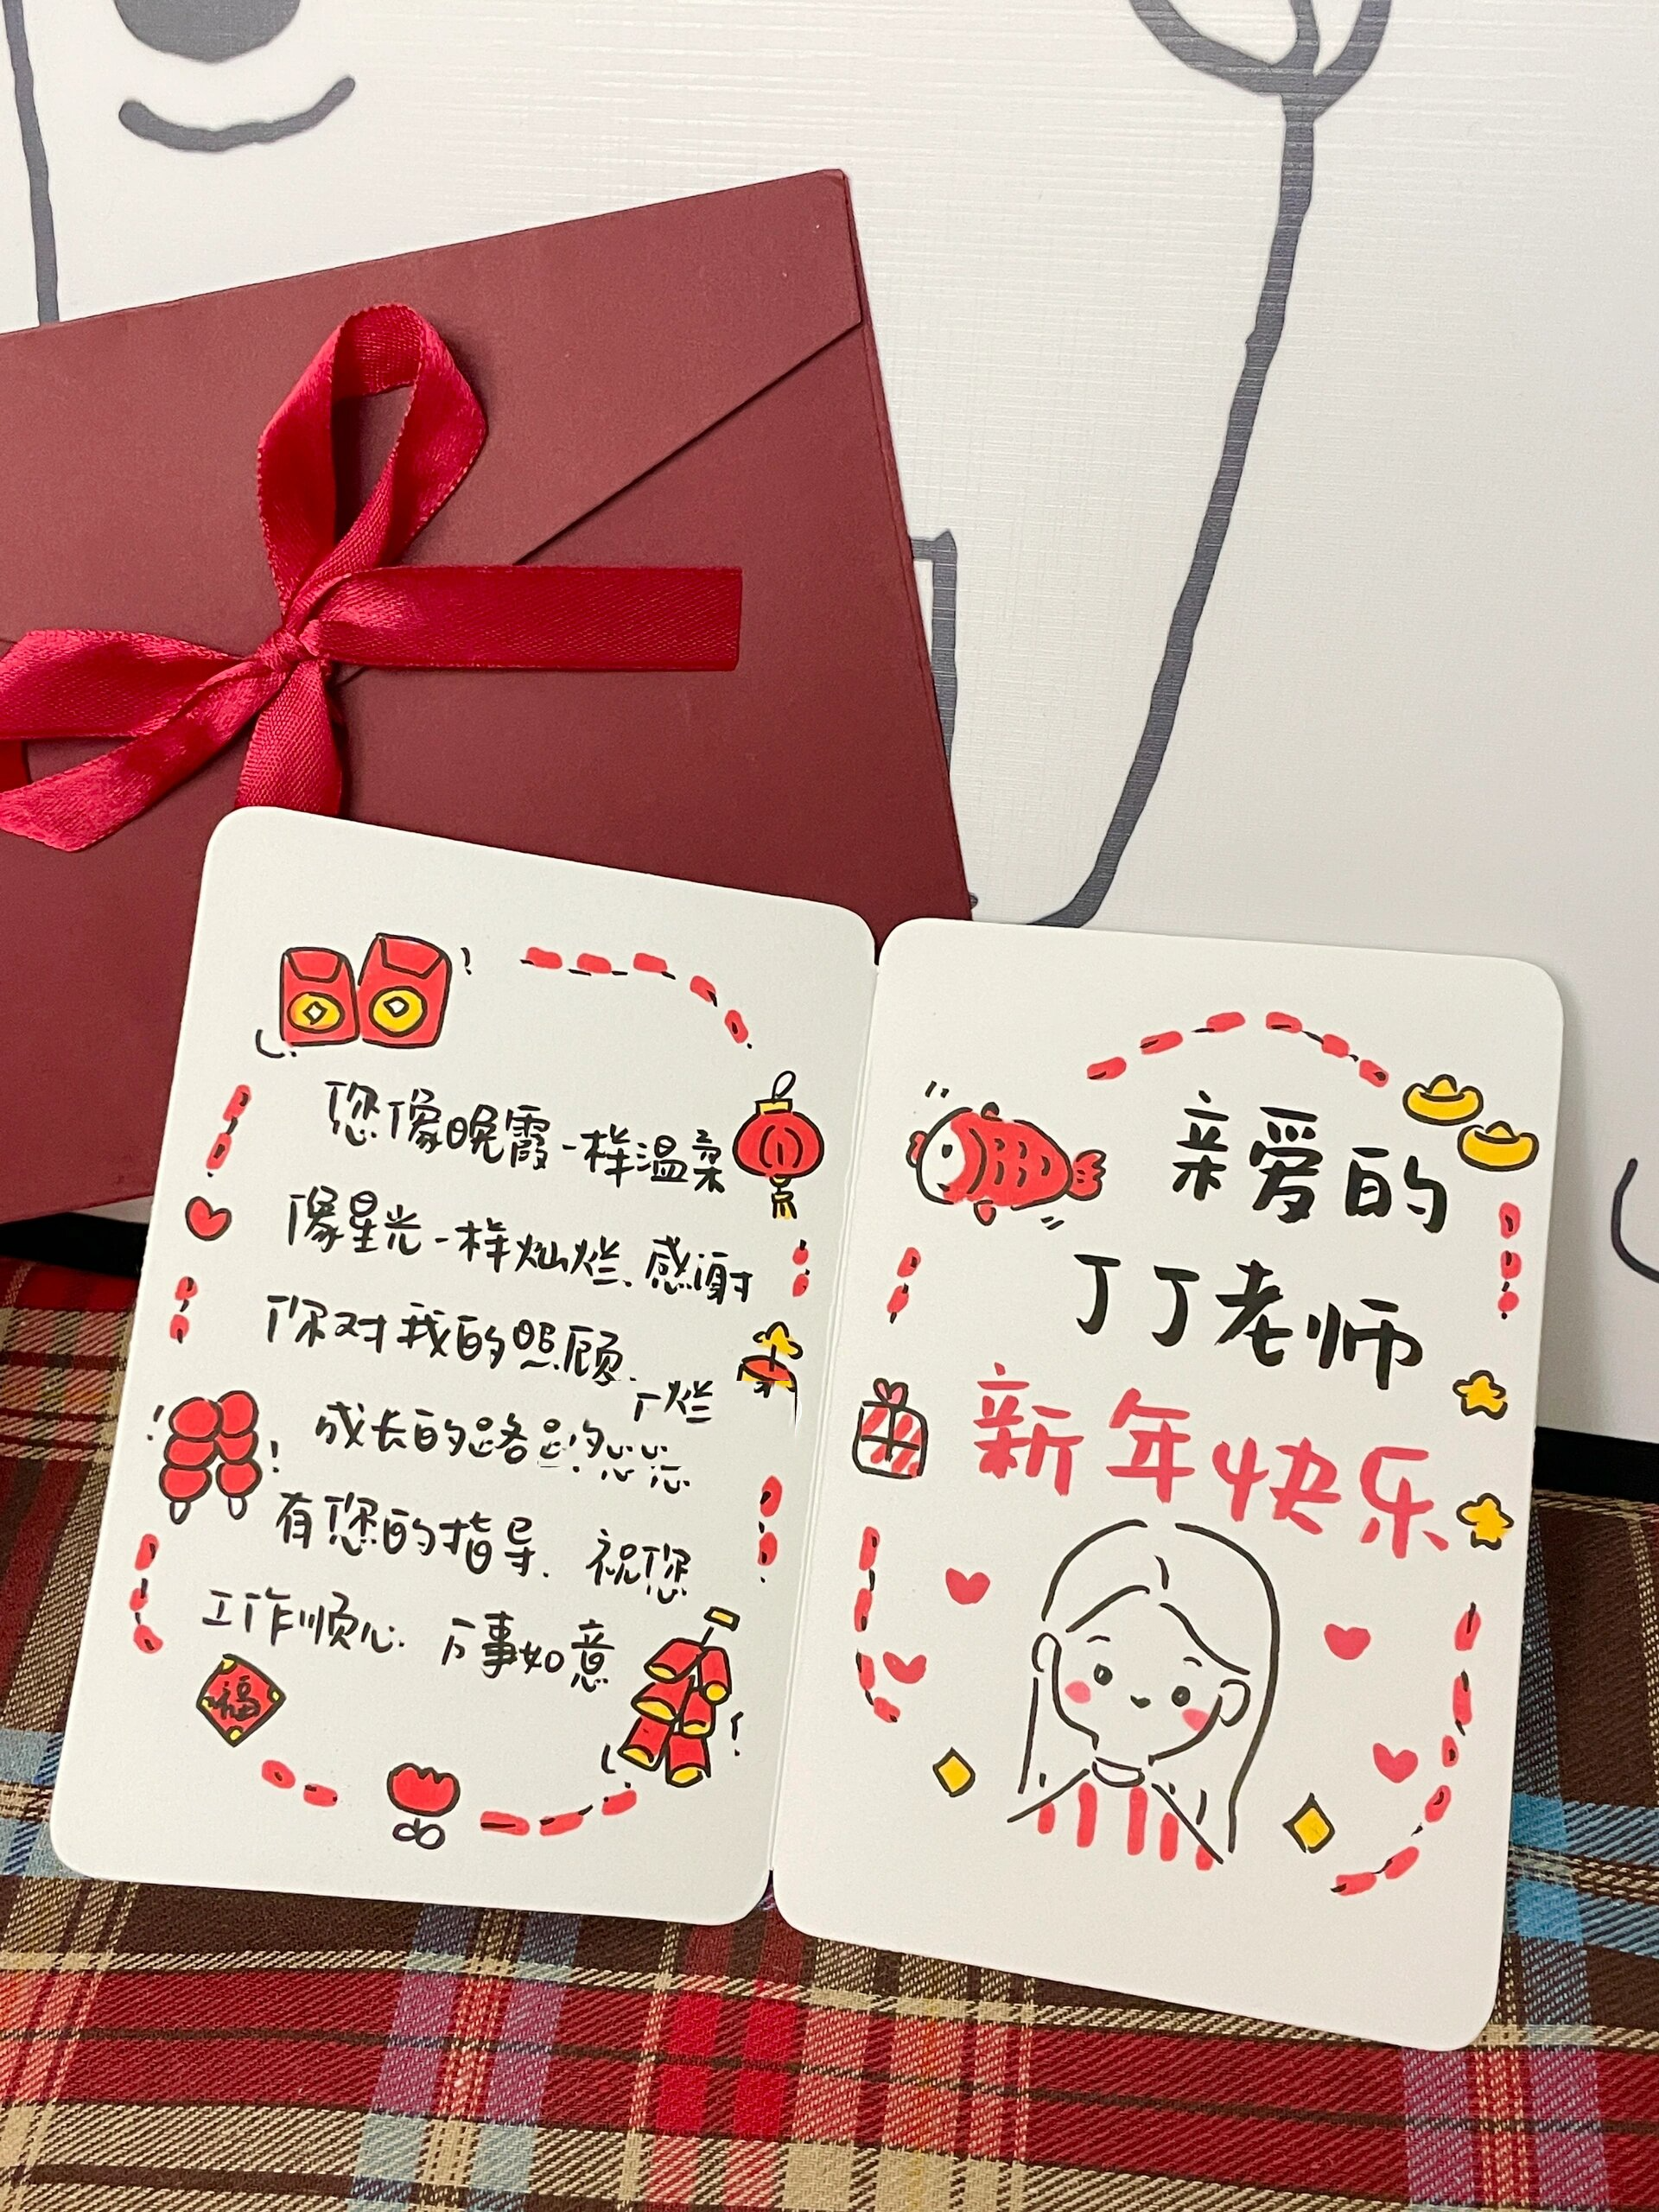 您像晚霞一样温柔
像星光一样灿烂.感谢
你对我的照顾.
成长的路
有您的指导.祝您
工作顺心.万事如意
福
亲爱的
丁丁老师
新年快乐